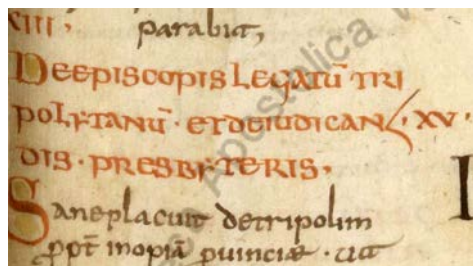 XIII, parabit,
DEEPISCOPIS LEGATŪ TRI
POLYTANŪ · ET DE IUDICAN · XV ·
DIS · PRESBYTERIS,
Sane placuit de tripolim
ꝓpt̄ inopiā ꝓuinciæ · ut